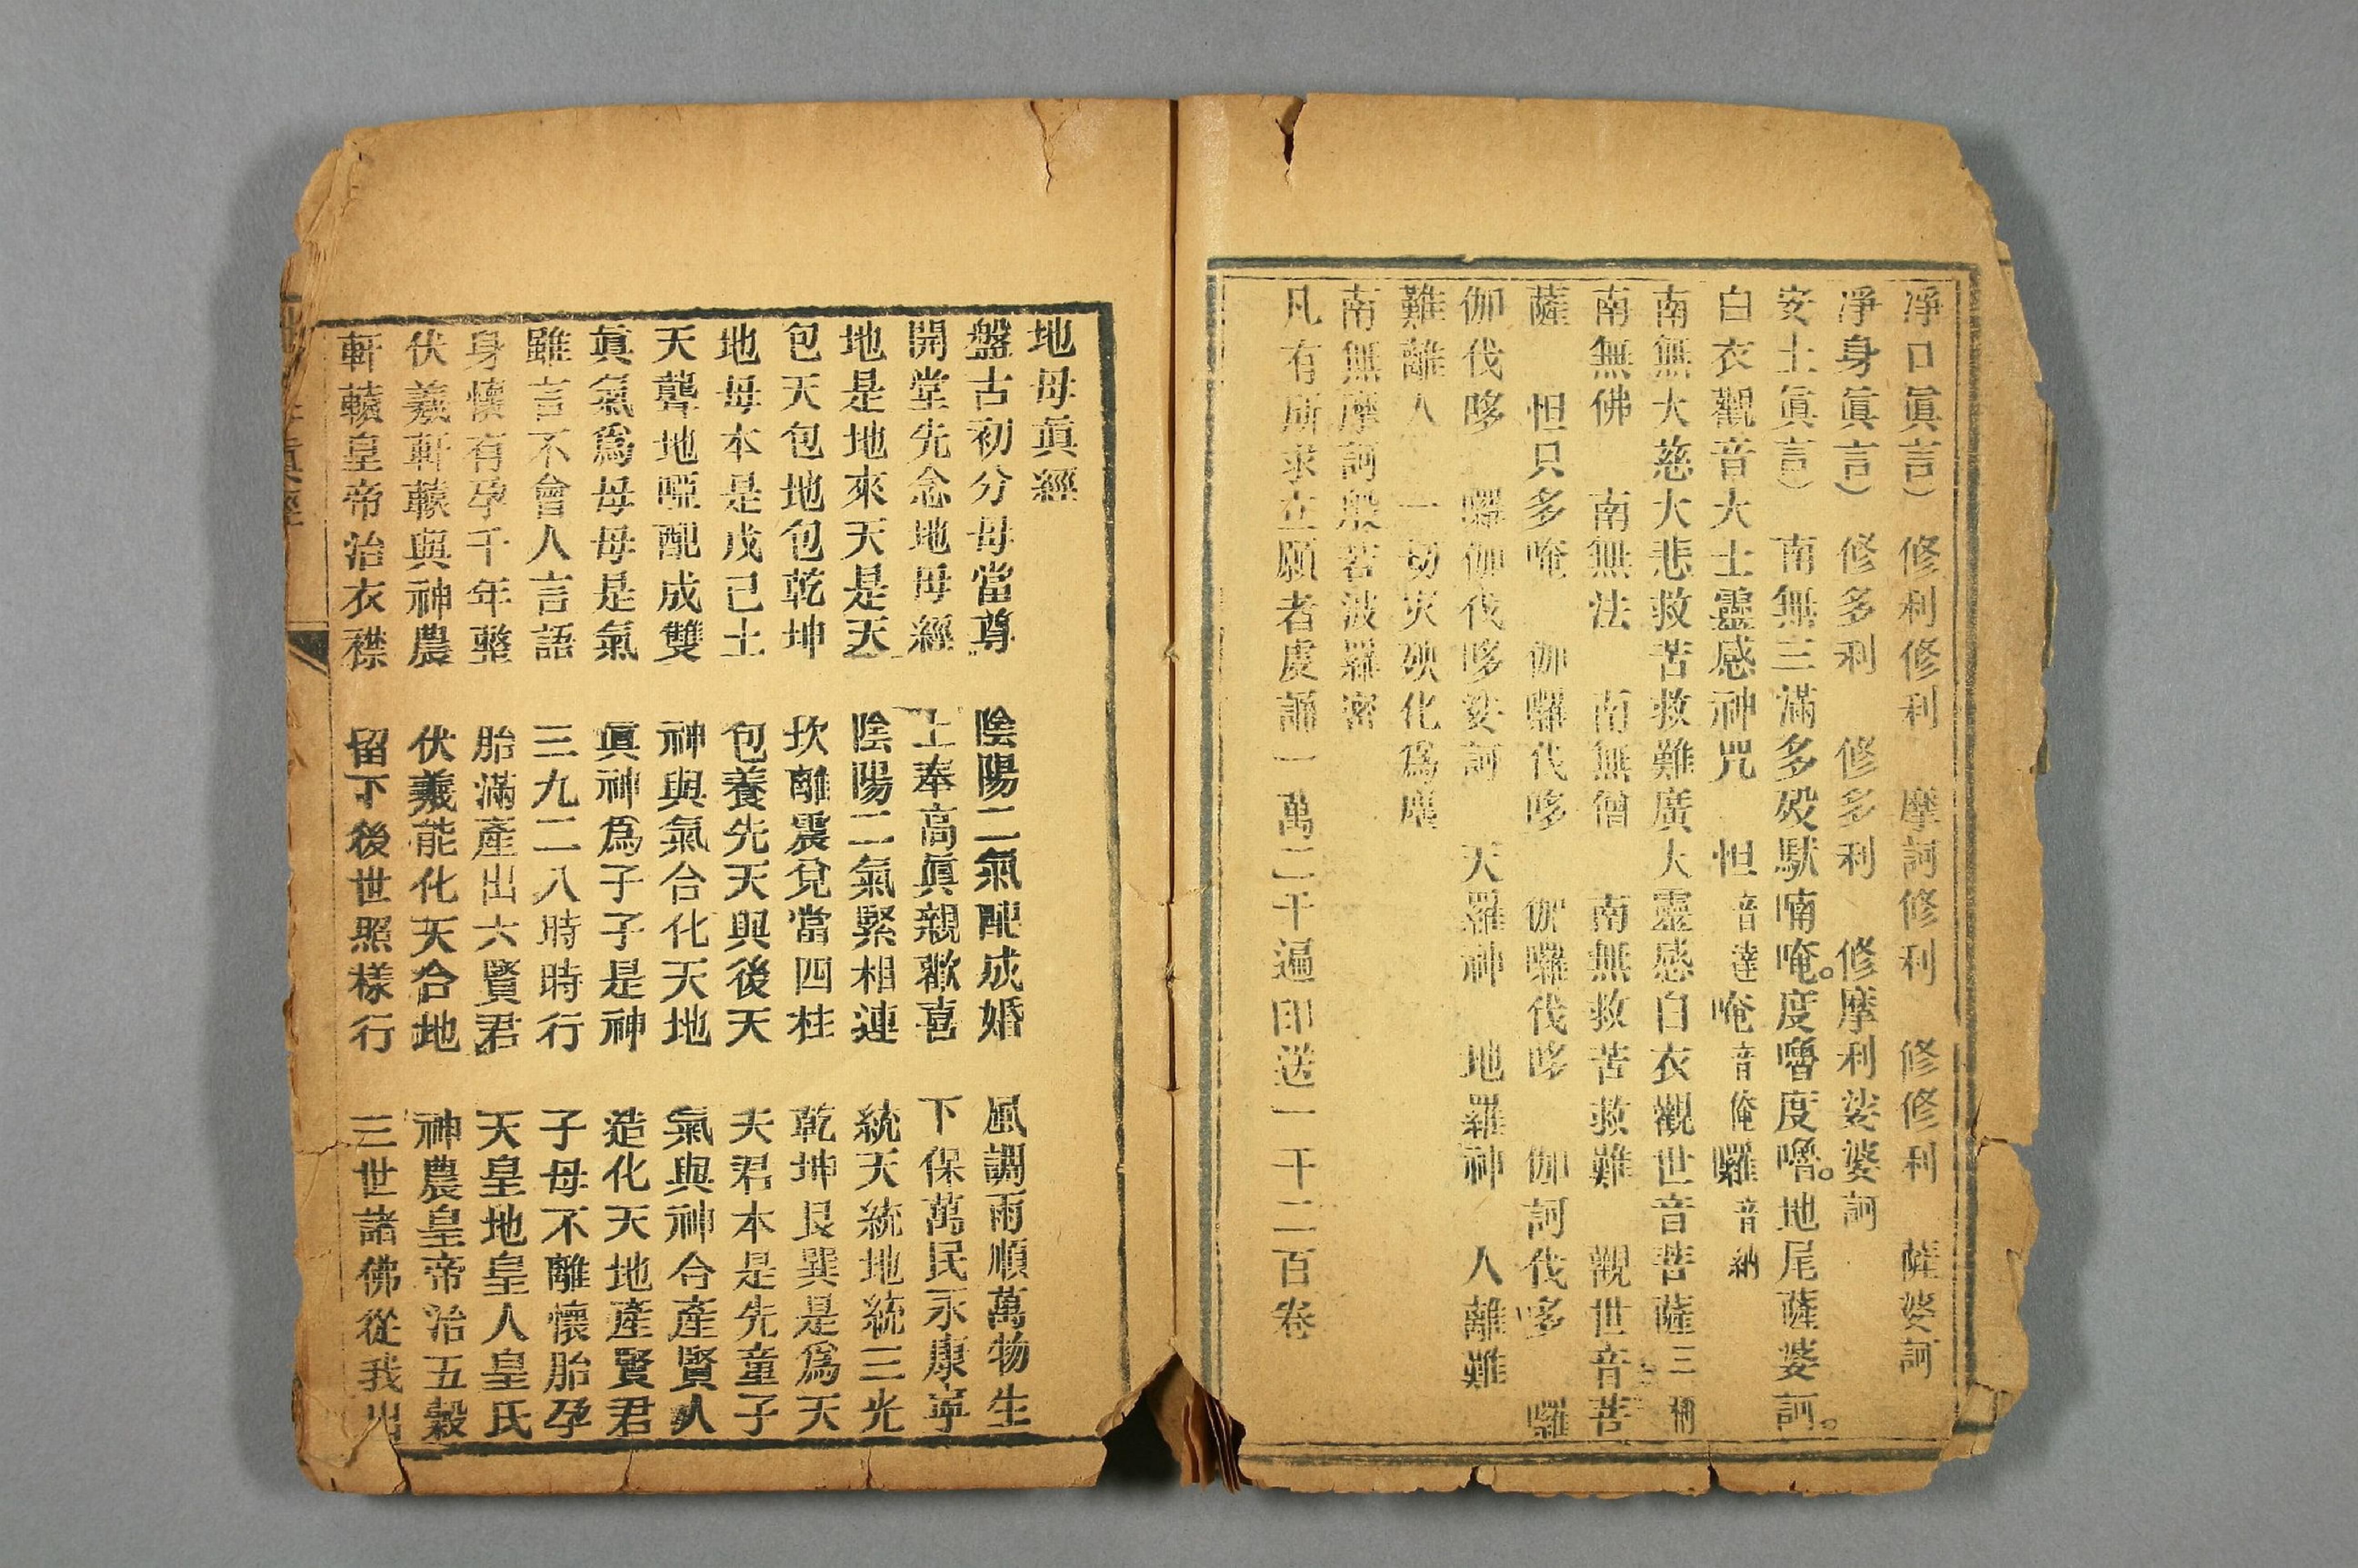 淨口眞言）　修利修利　摩訶修利　修修利　薩婆訶
淨身眞言）　修多利　修多利　修摩利娑婆訶
安土眞言）　南無三滿多殁馱喃唵。度嚕度嚕。地尾薩婆訶。
白衣觀音大士靈感神咒　怛音達唵音俺囉音納
南無大慈大悲救苦救難廣大靈感白衣觀世音菩薩三稱
南無佛　南無法　南無僧　南無救苦救難　觀世音菩
薩　怛只多唵　伽囉伐哆　伽囉伐哆　伽訶伐哆　囉
伽伐哆　囉伽伐哆娑訶　天羅神　地羅神　人離難
難離人　一切灾殃化爲塵
南無摩訶般若波羅密
凡有所求立願者虔誦一萬二千遍印送一千二百卷
地母眞經
盤古初分母當尊　陰陽二氣配成婚　風調雨順萬物生
開堂先念地母經　上奉高眞親歡喜　下保萬民永康寧
地是地來天是天　陰陽二氣緊相連　統天統地統三光
包天包地包乾坤　坎離震兌當四柱　乾坤艮巽是爲天
地母本是戊己土　包養先天與後天　天君本是先童子
天聾地啞配成雙　神與氣合化天地　氣與神合產賢人
眞氣爲母母是氣　眞神爲子子是神　造化天地產賢君
雖言不會人言語　三九二八時時行　子母不離懷胎孕
身懷有孕千年整　胎滿產出六賢君　天皇地皇人皇氏
伏羲軒轅與神農　伏羲能化天合地　神農皇帝治五穀
軒轅皇帝治衣襟　留下後世照樣行　三世諸佛從我出